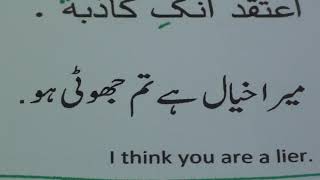 اعتقد انكِ كاذبة .
میرا خیال ہے تم جھوٹی ہو.
I think you are a lier.